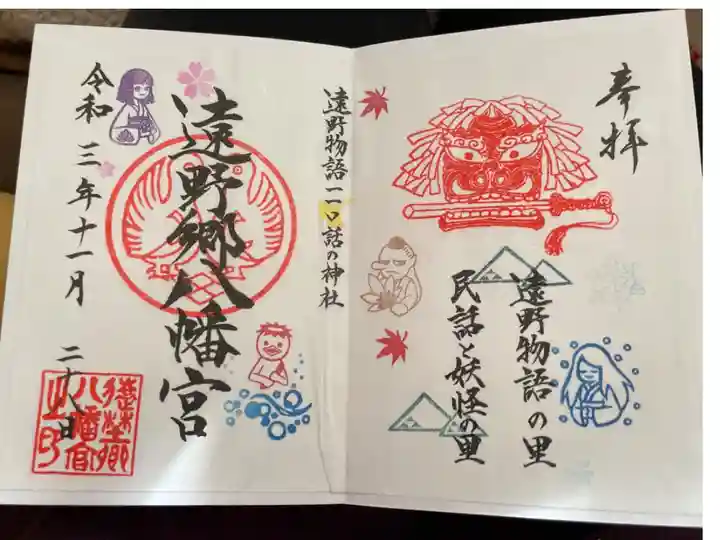 奉拝
遠野物語の里
民話と妖怪の里
遠野物語一一〇話の神社
遠野郷八幡宮
令和三年十一月二十八日
遠野郷
八幡宮
之印